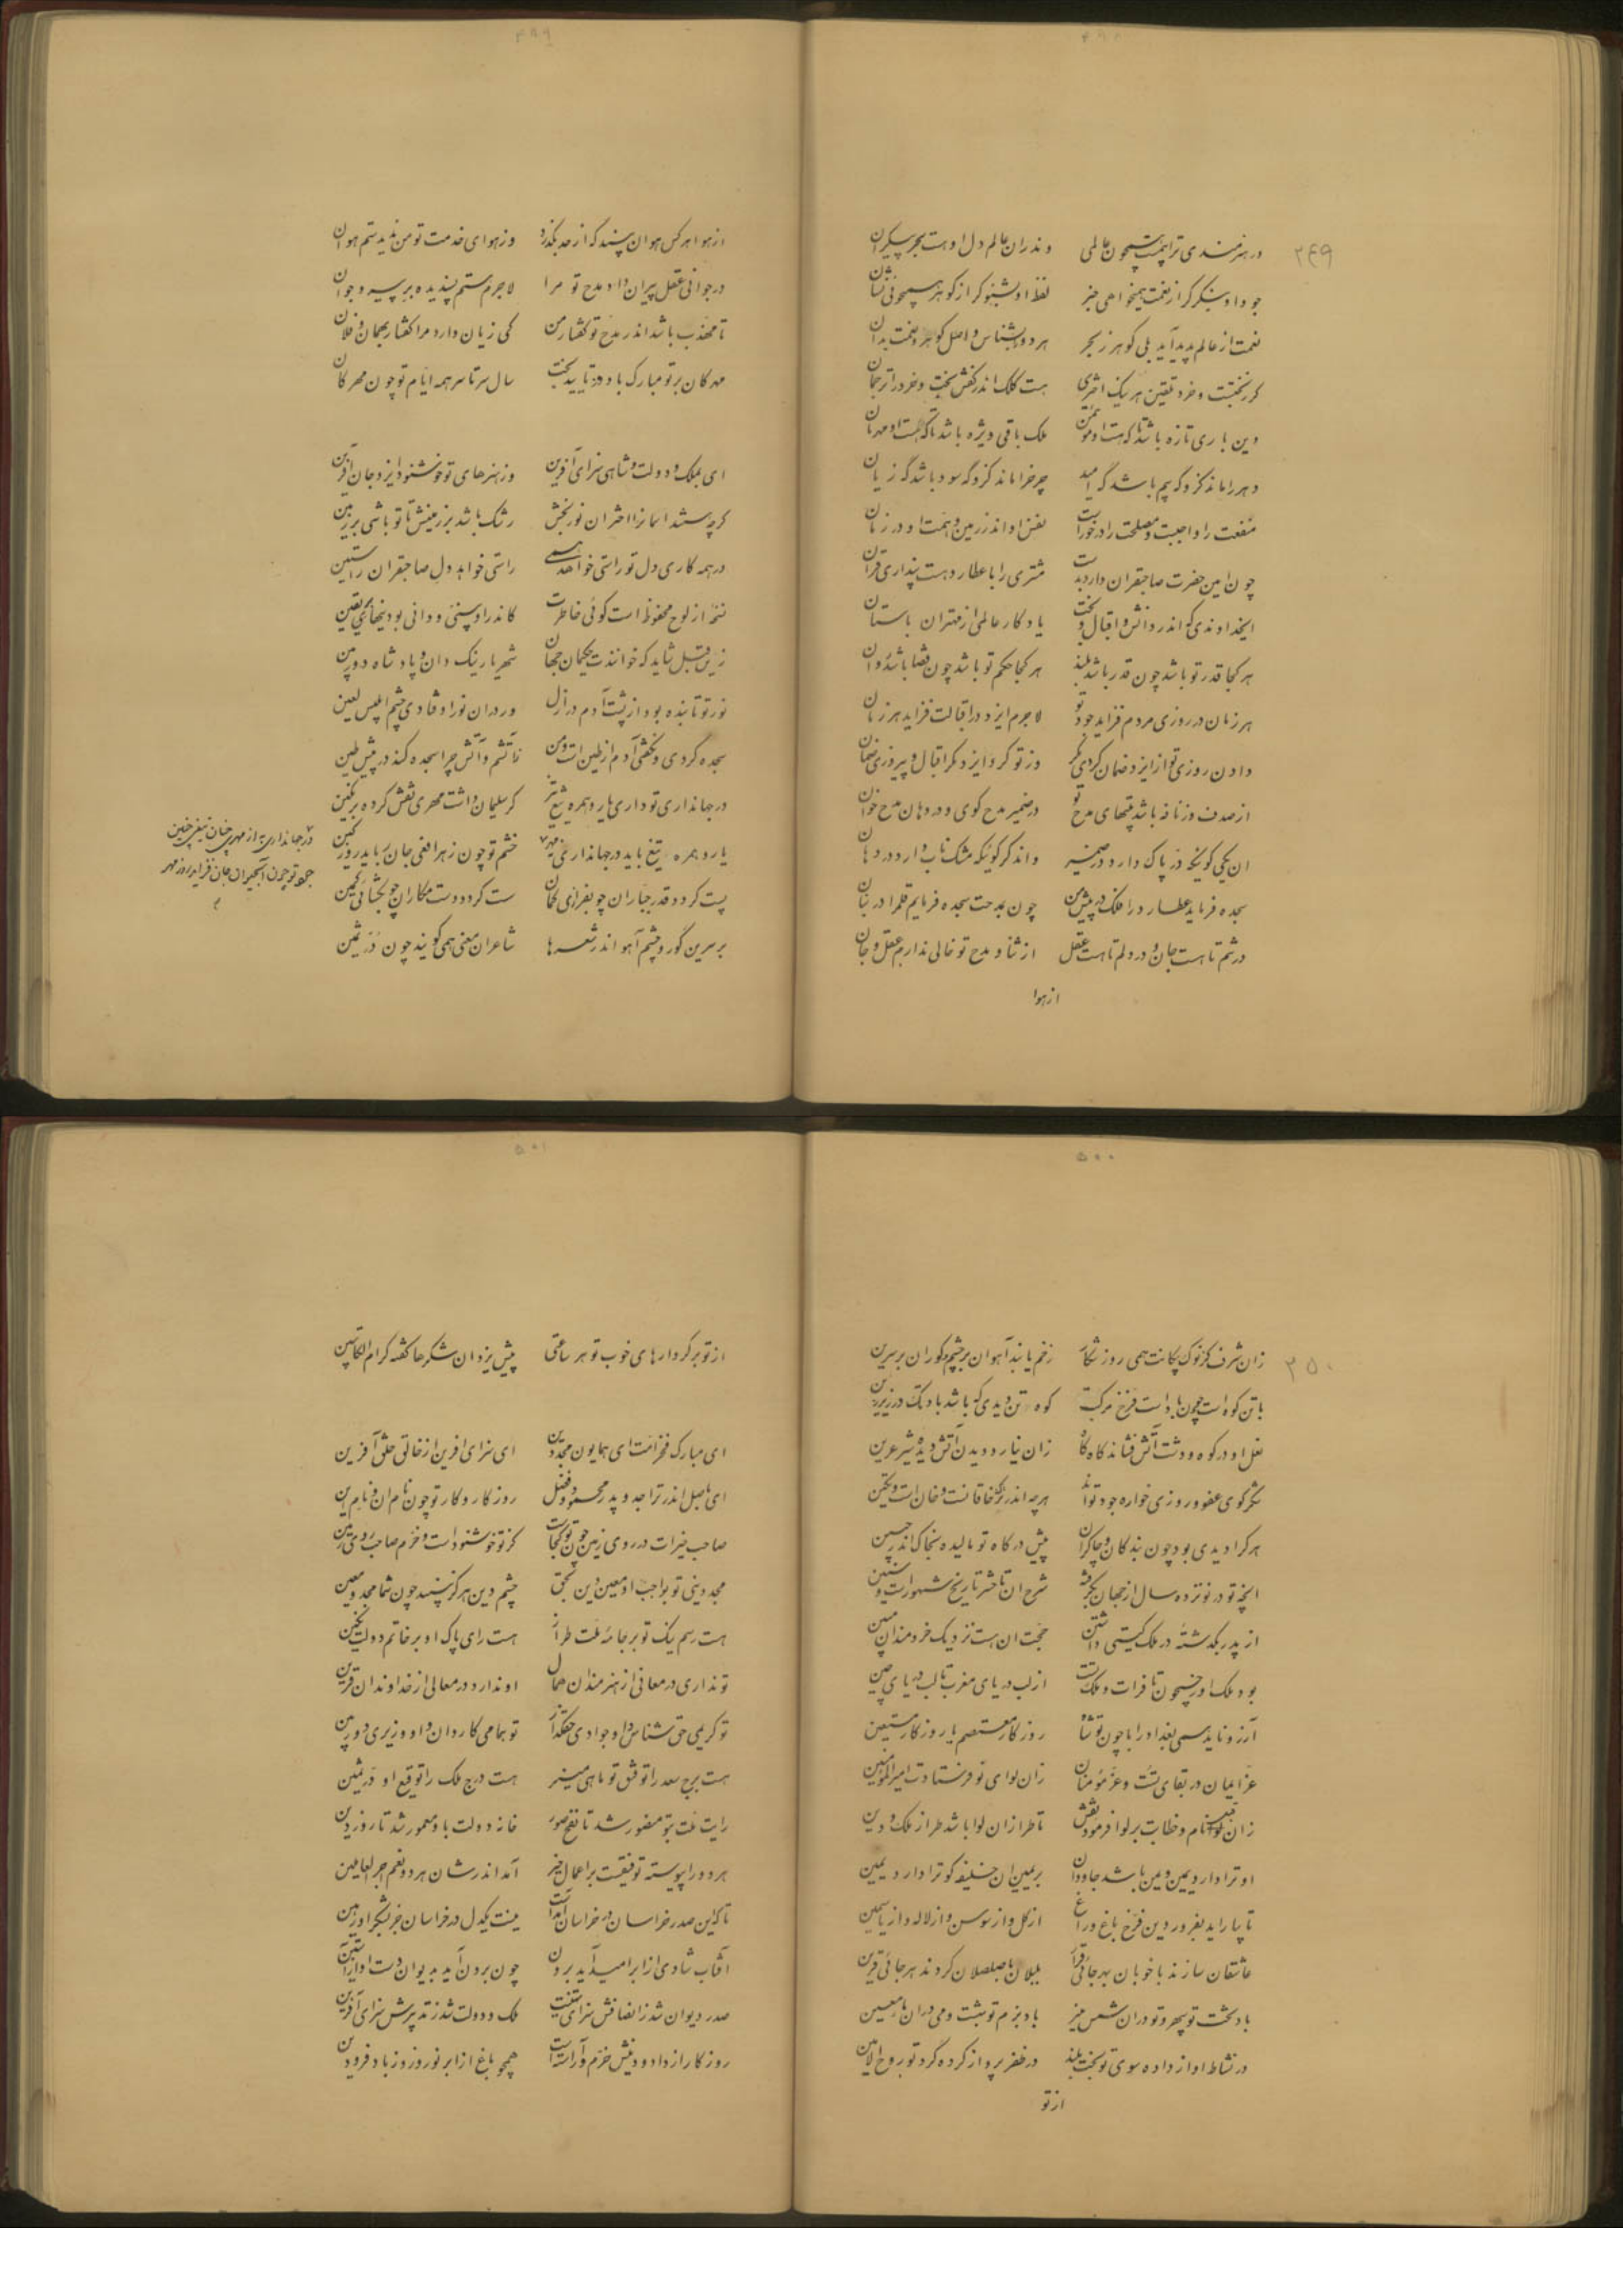 ۴۹۸
۲۴۹
در هنرمندی ترا پشت سپحون عالمی وندران عالم دل اوست بحر بیکران
جود او بنگر گر از نعمت همیخواهی خبر لفظ او بشنو گر از گوهر همیجوئی نشان
نعمت از عالم پدید آید بلی گوهر ز بحر هر دو بشناس و اصل گوهر و نعمت بدان
گر بتختست و خرد تعیین هر نیک اختری هست کلک اندر کفش بخت و خرد را ترجمان
دین باری تازه باشد تا که هست او مؤتمن ملک باقی ویژه باشد تا که هست او مهربان
دهر را ماند کزو گه بیم باشد گه امید چرخ را ماند کزو گه سود باشد گه زیان
منفعت را واجبست و مصلحت را درخورست نفس او اندر زمین و همت او در زمان
چون امین حضرت صاحبقران دارد بدست مشتری را با عطارد هست پنداری قران
ایخداوندی که اندر دانش و اقبال و بخت یادگار عالمی از مهتران باستان
هر کجا قدر تو باشد چون قدر باشد بلند هر کجا حکم تو باشد چون قضا باشد روان
هر زمان در روزی مردم فزاید جود تو لاجرم ایزد در اقبالت فزاید هر زمان
دادن روزی تو از ایزد ضمان کردی مگر وز تو کرد ایزد مگر اقبال و پیروزی ضمان
از صدف وز نافه باشد بیتهای مدح تو در ضمیر مدح گوی و در دهان مدح خوان
ان یکی گوئیکه در پاک دارد در ضمیر واند گر گوئیکه مشک ناب دارد در دهان
سجده فرماید عطارد را فلک در پیش من چون بمدحت سجده فرمایم قلم را در بنان
در تنم تا هست جان و در دلم تا هست عقل از ثنا و مدح تو خالی ندارم عقل و جان
از هوا
۴۹۹
از هوا هر کس هوان بیند که از حد بگذرد وز هوای خدمت تو من ندیدستم هوان
در جوانی عقل پیران داد مدح تو مرا لاجرم هستم پسندیده بر پیر و جوان
تا مهذب باشد اندر مدح تو گفتار من کی زیان دارد مرا گفتار بهمان و فلان
مهرگان بر تو مبارک باد و در تایید بخت سال سرتاسر همه ایام تو چون مهرگان
ای بملک و دولت و شاهی سزای آفرین وز هنرهای تو خوشنود ایزد جان آفرین
گرچه هستند اسمانرا اختران نوربخش رشک باشد بر زمینش تا تو باشی بر زمین
در همه کاری دل تو راستی خواهد همی راستی خواهد دل صاحبقران راستین
نسخه از لوح محفوظ است گوئی خاطرت کاندر او بینی و دانی بودنیها بیقین
زین قبل شاید که خوانندت حکیمان جهان شهریار نیک دان و پادشاه دوربین
نور تو تابنده بود از پشت آدم در ازل ور در ان نور اوفتادی چشم ابلیس لعین
سجده کردی و نگفتی آدم از طین است و من ز آتشم و آتش چرا سجده کند در پیش طین
در جهانداری تو داری یار و همره تیغ تیز گر سلیمان داشت مهری نقش کرده بر نگین
یار و همره تیغ باید در جهانداری نه مهر خشم تو چون زهر افعی جان رباید روز کین
پست گردد قدر جباران چو بفرازی کمان سست گردد دست مکاران چو بگشائی کمین
بر سرین گور و چشم آهو اندر شعرها شاعران معنی همی گویند چون در ثمین
در جهانداری به از مهری چنان تیغی چنین
جود تو چون آبحیوان جان فزاید روز مهر
۵۰۰
۲۵۰
زان شرف کز نوک پیکانت همی روز شکار زخم یابند آهوان بر چشم و گوران بر سرین
با تن کوه است چون باد است فرخ مرکبت کوه تن دیدی که باشد باد تگ در زیر زین
نعل او در کوه و دشت آتش فشاند گاه گاه زان نیارد دیدن آتش دیده شیر عرین
شکرگوی عفو و روزی خواره جود تواند هرچه اندر ترک خاقانست و خان است و تکین
هر کرا دیدی بود چون بندگان و چاکران پیش درگاه تو مالیده بخاک اندر جبین
انچه تو در نوزده سال از جهان بگرفته شرح ان تا حشر تاریخ شهور است و سنین
از پدر بگذشته در ملک گیتی داشتن حجت ان هست نزدیک خردمندان مبین
بود ملک او ز جیحون تا فرات و ملک تست از لب دریای مغرب تا لب دریای چین
آرزو ناید همی بغداد را با چون تو شاه روزگار معتصم یا روزگار مستعین
عز ایمان در بقای تست و عز مؤمنان زان لوای تو فرستادت امیرالمؤمنین
زان نام و خطابت بر لوا فرمود نقش تا طراز ان لوا باشد طراز ملک و دین
او ترا دارد یمین و من باشد جاودان بر یمین ان خلیفه کو ترا دارد یمین
تا بیاراید بفروردین فرخ باغ و راغ از گل و از سوسن و از لاله و از یاسمین
عاشقان سازند با خوبان بهر جائی قرار بلبلان با صلصلان گردند هر جائی قرین
باد تخت تو سپهر و تو در ان شمس منیر باد بزم تو بهشت و می در ان ماء معین
در نشاط اواز داده سوی تو بخت بلند در ظفر پرواز کرده گرد تو روح الامین
از تو
۵۰۱
از تو بر کردارهای خوب تو هر ساعتی پیش یزدان شکرها گفته کرام الکاتبین
ای مبارک فخر امت ای همایون مجد دین ای سزای آفرین از خالق خلق آفرین
ای باصل اندر ترا جد و پدر محمود و فضل روزگار و کار تو چون نام ان و نام این
صاحب خیرات در روی زمین چون تو کجاست کز تو خوشنود است و خرم صاحب روی زمین
مجد دینی تو بواجب او معین دین بحق چشم دین هرگز نبیند چون شما مجد و معین
هست رسم نیک تو بر جامه ملت طراز هست رای پاک او بر خاتم دولت نگین
تو نداری در معانی از هنرمندان همال او ندارد در معالی از خداوندان قرین
تو کریمی حق شناس و او جوادی حقگذار تو همامی کاردان و او وزیری دوربین
هست برج سعد را توفیق تو ماهی منیر هست درج ملک را توقیع او در ثمین
رایت ملت بتو منصور شد تا نفخ صور خانه دولت باو معمور شد تا روز دین
هر دو را پیوسته توفیقست بر اعمال خیر آمد اندر شان هر دو نعم اجر العاملین
تا که این صدر خراسان در خراسان آمده است نیست یکدل در خراسان جز بشکر او رهین
آفتاب شادی از ابر امید آید برون چون برون آید بدیوان دست او از آستین
صدر دیوان شد ز انصافش سزای تهنیت ملک و دولت شد ز تدبیرش سزای آفرین
روزگار از داد و دینش خرم و آراسته است همچو باغ از ابر نوروز و ز باد فرودین